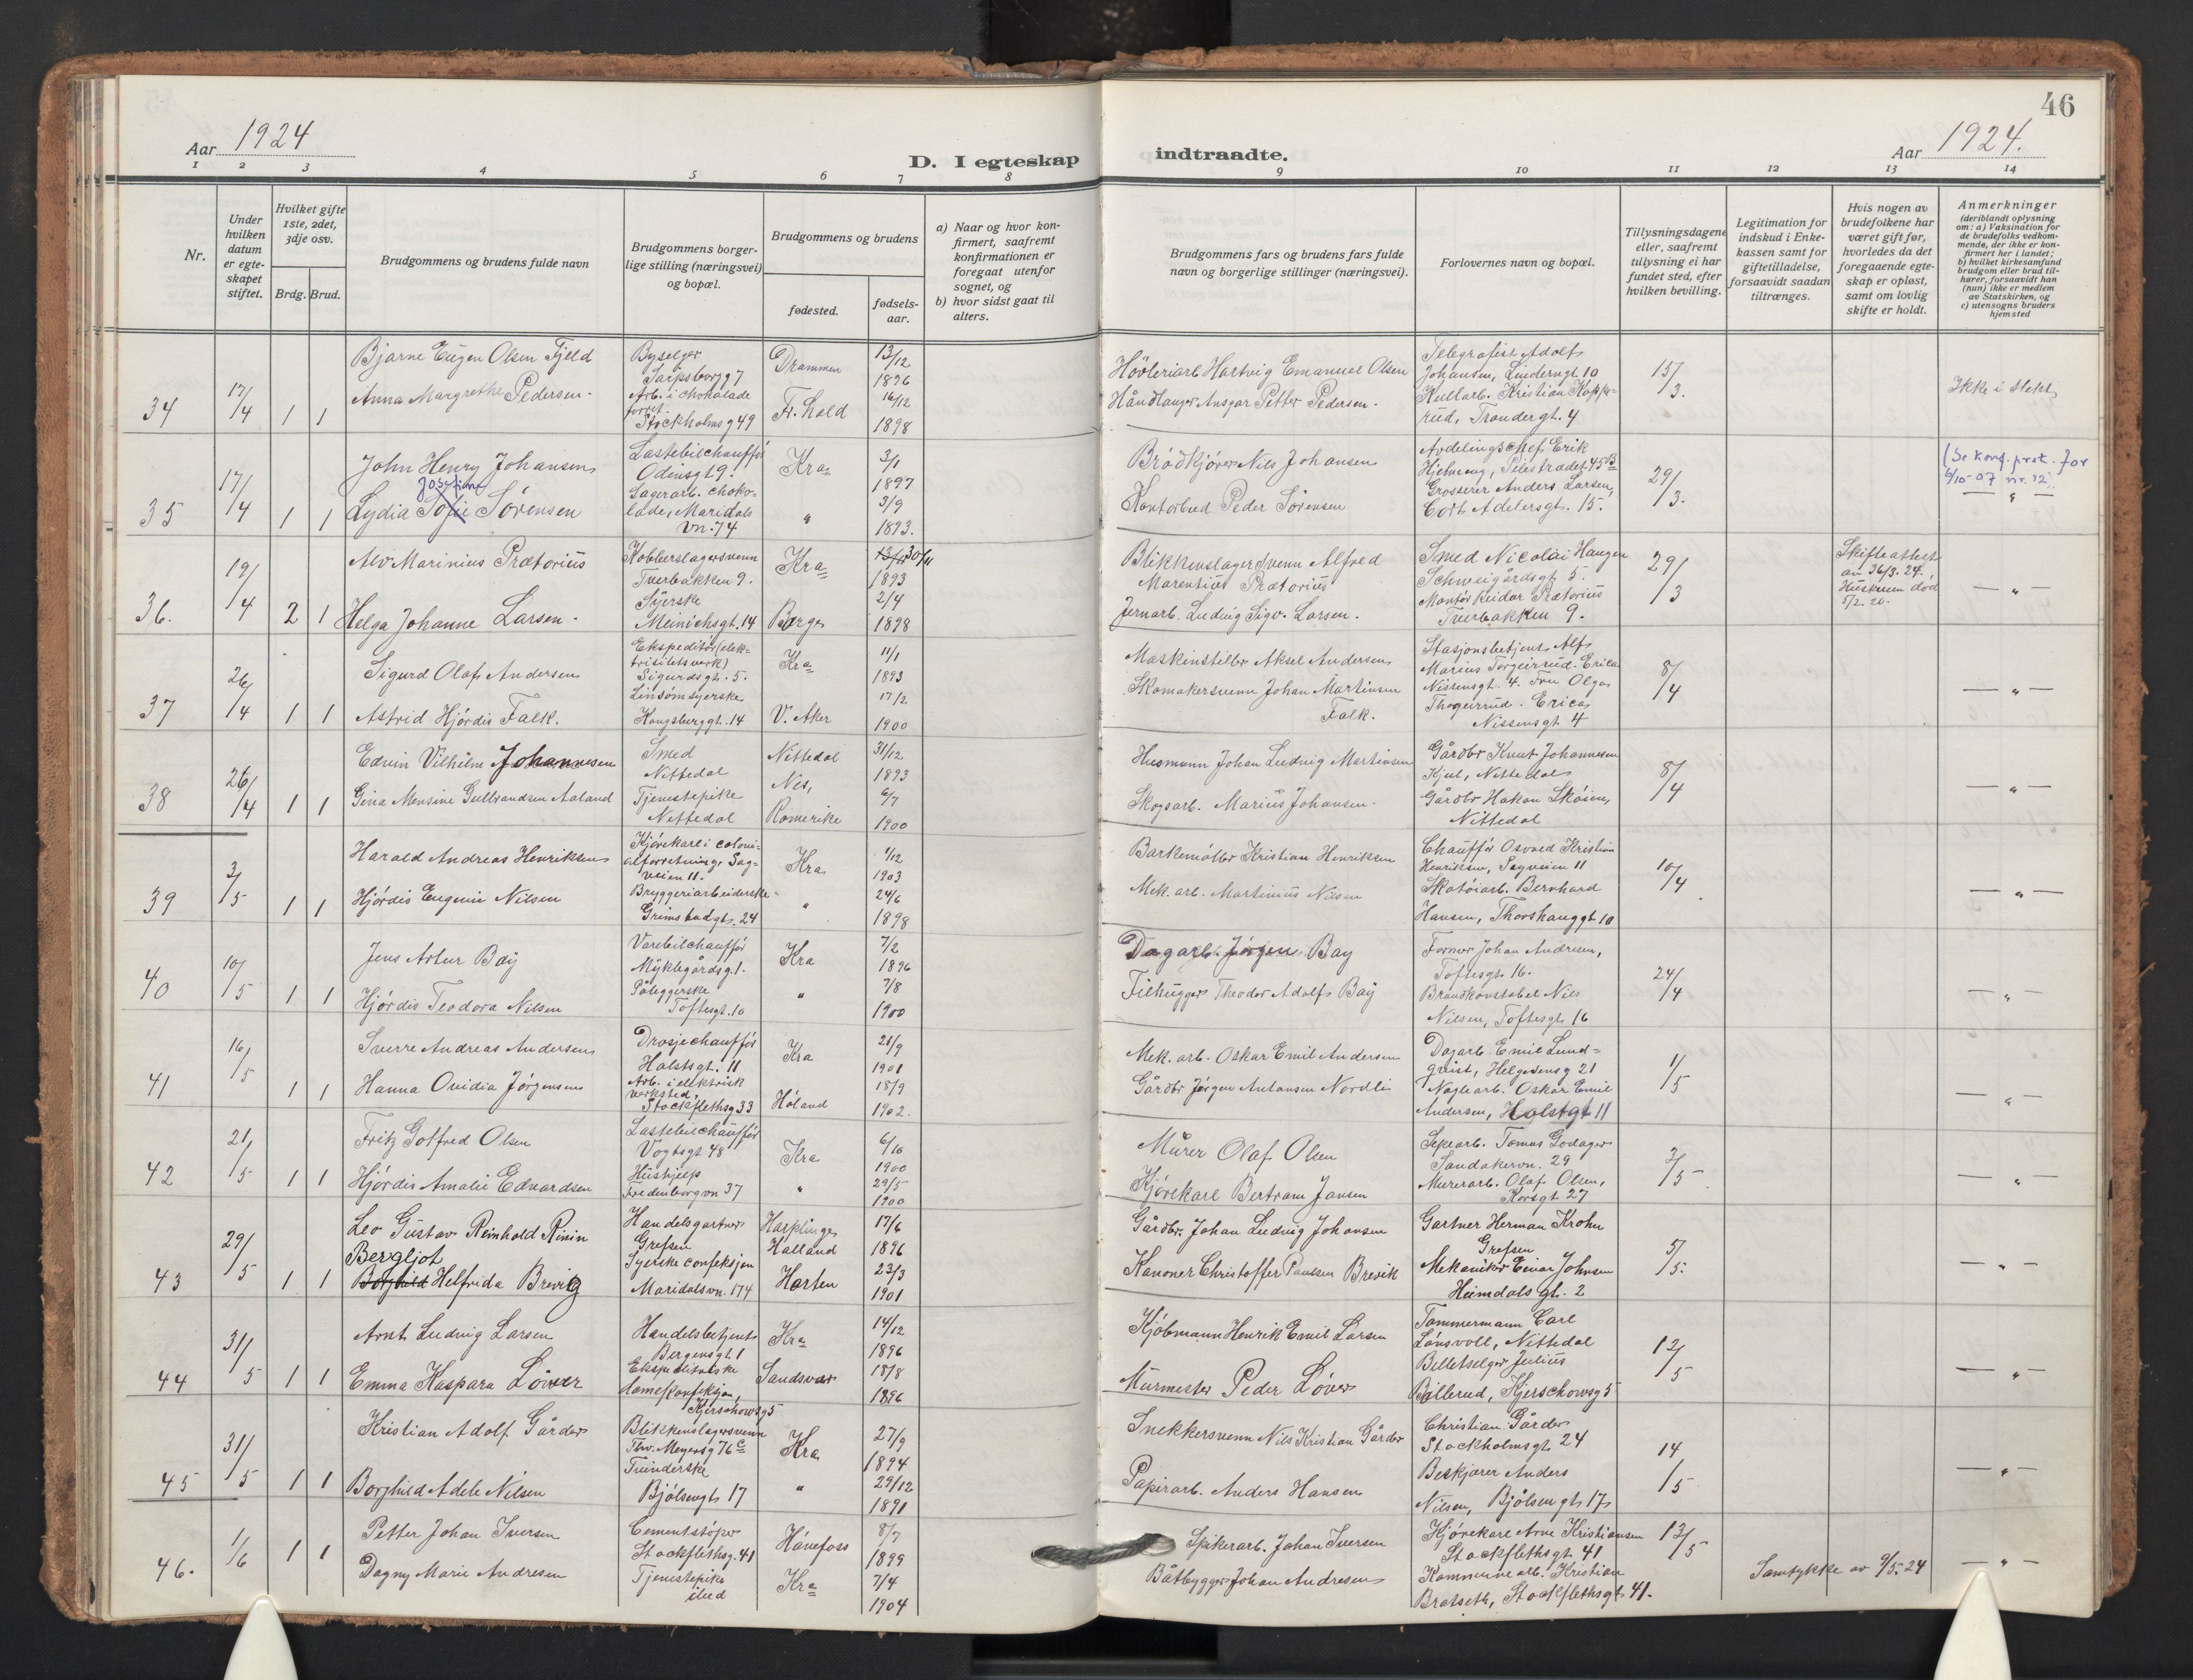 46
Aar 1924
D. I egteskap indtraadte.
Aar 1924.
1 2 3 4 5 6 7 8 9 10 11 12 13 14
Nr.
Under hvilken datum er egteskapet stiftet.
Hvilket gifte 1ste, 2det, 3dje osv.
Brdg. Brud.
Brudgommens og brudens fulde navn
Brudgommens borgerlige stilling (næringsvei) og bopæl.
Brudgommens og brudens
fødested.
fødselsaar.
a) Naar og hvor konfirmert, saafremt konfirmationen er foregaat utenfor sognet, og
b) hvor sidst gaat til alters.
Brudgommens fars og brudens fars fulde navn og borgerlige stillinger (næringsvei).
Forlovernes navn og bopæl.
Tillysningsdagene eller, saafremt tillysning ei har fundet sted, efter hvilken bevilling.
Legitimation for indskud i Enkekassen samt for giftetilladelse, forsaavidt saadan tiltrænges.
Hvis nogen av brudefolkene har været gift før, hvorledes da det foregaaende egteskap er opløst, samt om lovlig skifte er holdt.
Anmerkninger
(deriblandt oplysning om: a) Vaksination for de brudefolks vedkommende, der ikke er konfirmert her i landet;
b) hvilket kirkesamfund brudgom eller brud tilhører, forsaavidt han (hun) ikke er medlem av Statskirken, og
c) utensogns bruders hjemsted
34 17/4 1 1
Bjarne Eugen Olsen Fjeld
Anna Margrethe Pedersen.
Byselger
Sarpsborgg 7
Arb. i chokolade
fabr.
Stockholmsg 49
Drammen 13/12 1896
Fr.hald 16/12 1898
Hövleriarb Hartvig Emanuel Olsen
Håndlanger Ansgar Petter Pedersen.
Telegrafist Adolf
Johansen, Linderngt 10
Kullarb. Kristian
rud, Trondergt. 4
15/3.
Ikke i slekt
35 17/4 1 1
John Henry Johansen
Josefine
Lydia Sofie Sørensen
Lastebilchauffør
Odinsgt 9.
Lagerarb. choko-
lade, Maridals
vn. 74
Kra 3/1 1897
" 3/9 1893.
Brödkjører Nils Johansen
Kontorbud Peder Sørensen
Avdelingschef Erik
Hjelmeng, Pilestrædet 45 B
Grosserer Anders Larsen,
Cort Adelersgt. 15.
29/3.
(Se konf. prot. for
6/10-07 nr. 12)
— " —
36. 19/4 2 1
Alv Marinius Prætorius
Helga Johanne Larsen.
Kobberslagersvenn
Tverbakken 9.
Syerske
Meinichsgt. 14
Kra 30/11 1893
Borge 2/4 1898
Blikkenslagersvenn Alfred
Marentius Prætorius
Jernarb. Ludvig Sigv. Larsen.
Smed Nicolai Haugen
Schweigårdsgt 5.
Montör Reidar Prætorius
Tverbakken 9.
29/3
Skifteattest
av 26/3. 24.
Hustruen død
5/2. 20.
— " —
37 26/4 1 1
Sigurd Olaf Andersen
Astrid Hjördis Falk.
Ekspeditör (elek-
trisitetsverk)
Sigurdsgt. 5.
Linsömsyerske
Kongsberggt. 14
Kra 11/1 1893
V. Aker 17/2 1900
Maskinstiller Aksel Andersen
Skomakersvenn Johan Martinsen
Falk.
Stasjonsbetjent Alf
Marius Torgeirrud. Erica
Nissensgt. 4. Fru Olga
Thogeirrud. Erica
Nissensgt 4
8/4
— " —
38 26/4 1 1
Edvin Vilhelm Johannesen
Gina Mensine Gulbrandsen Aaland
Smed
Nittedal
Tjenestepike
Nittedal
Nittedal 31/12 1893
Nes,
Romerike 6/7 1900
Husmann Johan Ludvig Martinsen
Skogsarb. Marius Johansen.
Gårdbr Knut Johannesen
Kjul, Nittedal
Gårdbr Hakon Skösien,
Nittedal
8/4
— " —
39 3/5 1 1
Harald Andreas Henriksen
Hjördis Eugenie Nilsen
Kjörekarl i coloni-
alforretning. Sag-
veien 11.
Bryggeriarbeiderske
Grimstadgt. 24
Kra 1/12 1903
" 24/6 1898
Barkemöller Kristian Henriksen
Mek. arb. Martinius Nilsen
Chauffør Osvald Kristian
Henriksen, Sagveien 11
Skotöiarb. Bernhard
Hansen, Thorshauggt 10
10/4
— " —
40 10/5 1 1
Jens Artur Bay
Hjördis Teodora Nilsen
Varebilchauffør
Myklegårdsg. 1.
Påleggerske
Toftesgt. 10
Kra 7/2 1896
" 7/8 1900
Dagarb. Jørgen Bay
Filhugger Theodor Adolf Bay
Former Johan Andresen,
Toftesgt 16.
Brandkonstabel Nils
Nilsen, Toftesgt 16
24/4
— " —
41 16/5 1 1
Sverre Andreas Andersen
Hanna Ovidia Jörgensen
Drosjechauffør
Holstsgt. 11
Arb. i elektrisk
verksted,
Stockflethsg 33
Kra 21/9 1901
Höland 18/9 1902.
Mek. arb. Oskar Emil Andersen
Gårdbr Jörgen Antonsen Nordli
Dagarb Emil Lund-
qvist, Helgesensg 21
Naglearb. Oskar Emil
Andersen, Holstgt 11
1/5
— " —
42 21/5 1 1
Fritz Gotfred Olsen
Hjördis Amalie Edvardsen
Lastebilchauffør
Vogtsgt 48
Hushjelp
Fredensborgvn 37
Kra 6/10 1900
" 29/5 1900
Murer Olaf Olsen
Kjörekarl Bertram Jansen
Sepearb. Tomas Godager
Sandakervn. 29
Murerarb. Olaf Olsen,
Korsgt 27
3/5
— " —
43 29/5 1 1
Leo Gustav Reinhold Rinin
Bergljot
Borghild Helfrida Brevig
Handelsgartner
Grefsen
Syerske confeksjon
Maridalsvn. 174
Harplinge
Halland 17/6 1896
Horten 23/3 1901
Gårdbr. Johan Ludvig Johansen
Kanoner Christoffer Paulsen Brevik
Gartner Herman Krohn
Grefsen
Mekaniker Einar Johnsen
Heimdals gt. 2
5/5.
— " —
44 31/5 1 1
Arnt Ludvig Larsen
Emma Kaspara Löver
Handelsbetjent
Bergensgt. 1
Ekspeditriske
damekonfeksjon,
Kjerschowsg 5
Kra 14/12 1896
Sandsvær 18/8 1896
Kjöbmann Henrik Emil Larsen
Murmester Peder Löver
Tömmermann Carl
Lönsvoll, Nittedal
Billetselger Julius
Billerud, Kjerschowsg 5
12/5
— " —
45 31/5 1 1
Kristian Adolf Gårder
Borghild Adele Nilsen
Blikkenslagersvenn
Thv. Meyersg 76 c
Tvinderske
Bjölsengt 17
Kra 27/9 1894
" 29/12 1891
Snekkersvenn Nils Kristian Gårder
Papirarb. Anders Hansen
Christian Gårder
Stockholmsgt. 24
Beskjærer Anders
Nilsen, Bjölsengt 17
14/5
— " —
46. 1/6 1 1
Petter Johan Iversen
Dagny Marie Andresen
Cementstöper
Stockflethsg. 41
Tjenestepike
ibid
Hönefoss 8/7 1899
Kra 7/4 1904
Spikerarb. Johan Iversen
Båtbygger Johan Andresen
Kjörekarl Arne Kristiansen
Stockflethsgt 41
Kommunearb. Kristian
Bratseth, Stockflethsgt 41.
13/5
Samtykke av 9/5. 24
— " —